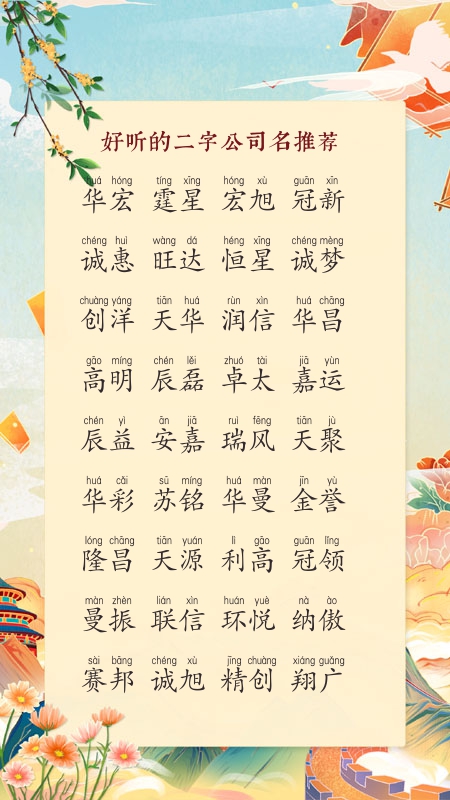 好听的二字公司名推荐
huá hóng tíng xīng hóng xù guān xīn
华宏 霆星 宏旭 冠新
chéng huì wàng dá héng xīng chéng mèng
诚惠 旺达 恒星 诚梦
chuàng yáng tiān huá rùn xìn huá chāng
创洋 天华 润信 华昌
gāo míng chén lěi zhuó tài jiā yùn
高明 辰磊 卓太 嘉运
chén yì ān jiā ruì fēng tiān jù
辰益 安嘉 瑞风 天聚
huá cǎi sū míng huá màn jīn yù
华彩 苏铭 华曼 金誉
lóng chāng tiān yuán lì gāo guān lǐng
隆昌 天源 利高 冠领
màn zhèn lián xìn huán yuè nà ào
曼振 联信 环悦 纳傲
sài bāng chéng xù jīng chuàng xiáng guǎng
赛邦 诚旭 精创 翔广